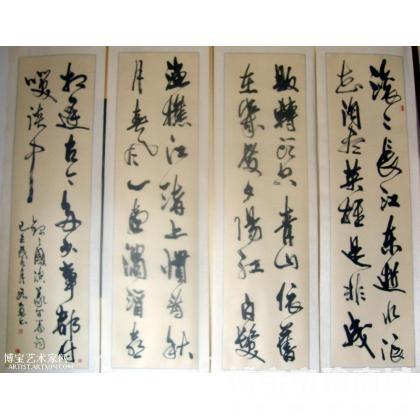 滚々长江东逝水浪
花淘尽英雄是非成
败轉头空青山依舊
在幾度夕陽红白髮
渔樵江渚上惯看秋
月春风一壶濁酒喜
相逢古今多少事都付
笑谈中
博宝艺术家网
ARTIST.ARTXUN.COM